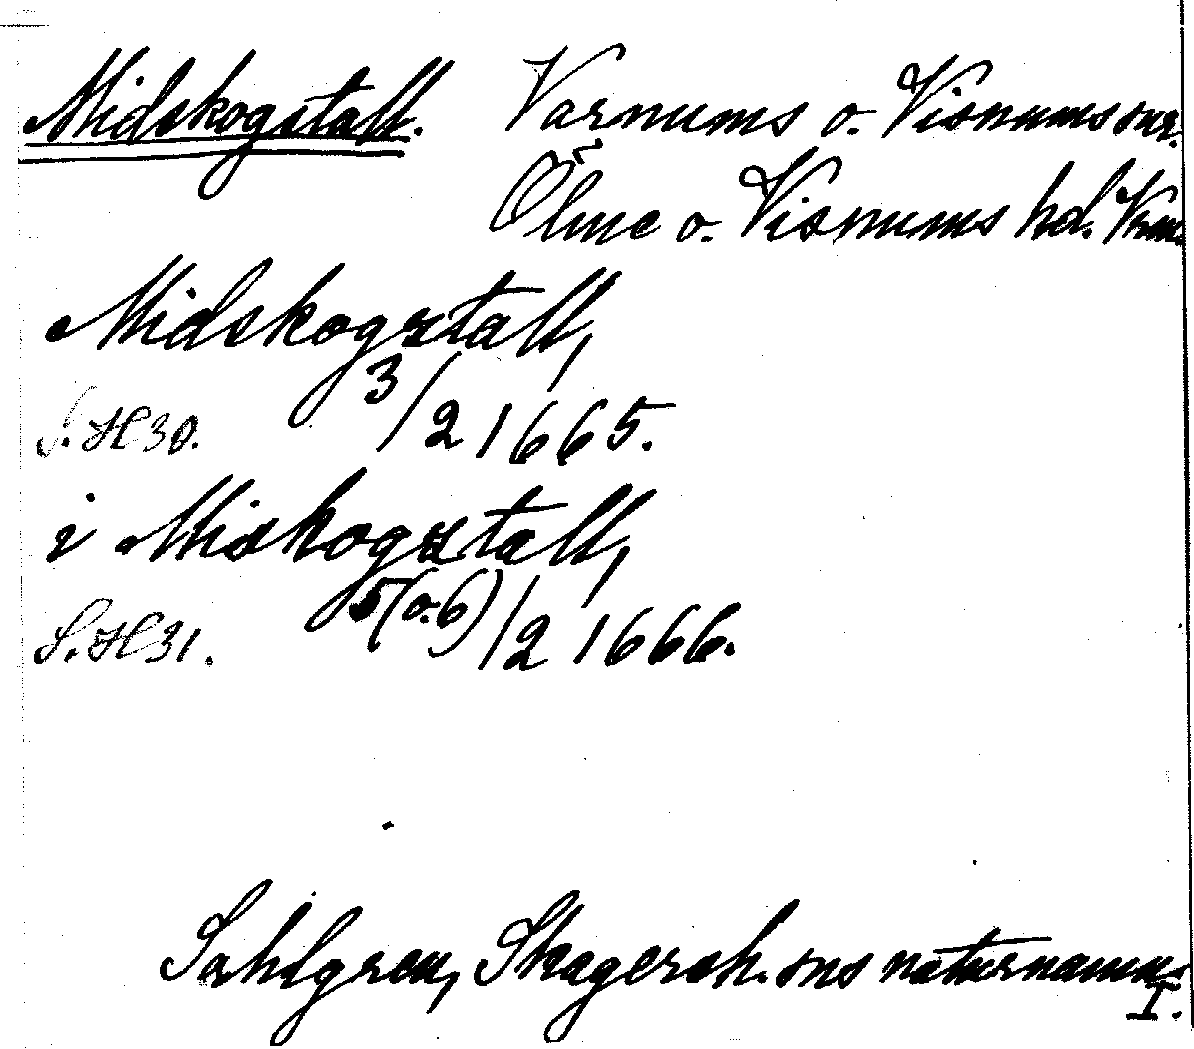 Midskogstall. Varnums o. Visnums snr.
Ölme o. Visnums hd. Vrm.
Midskogstall,
S. H 30. 3/2 1665.
i Miskogstall,
S. H 31. 5(o.6)/2 1666.
Sahlgren, Skagersh. sns naturnamn.
I.